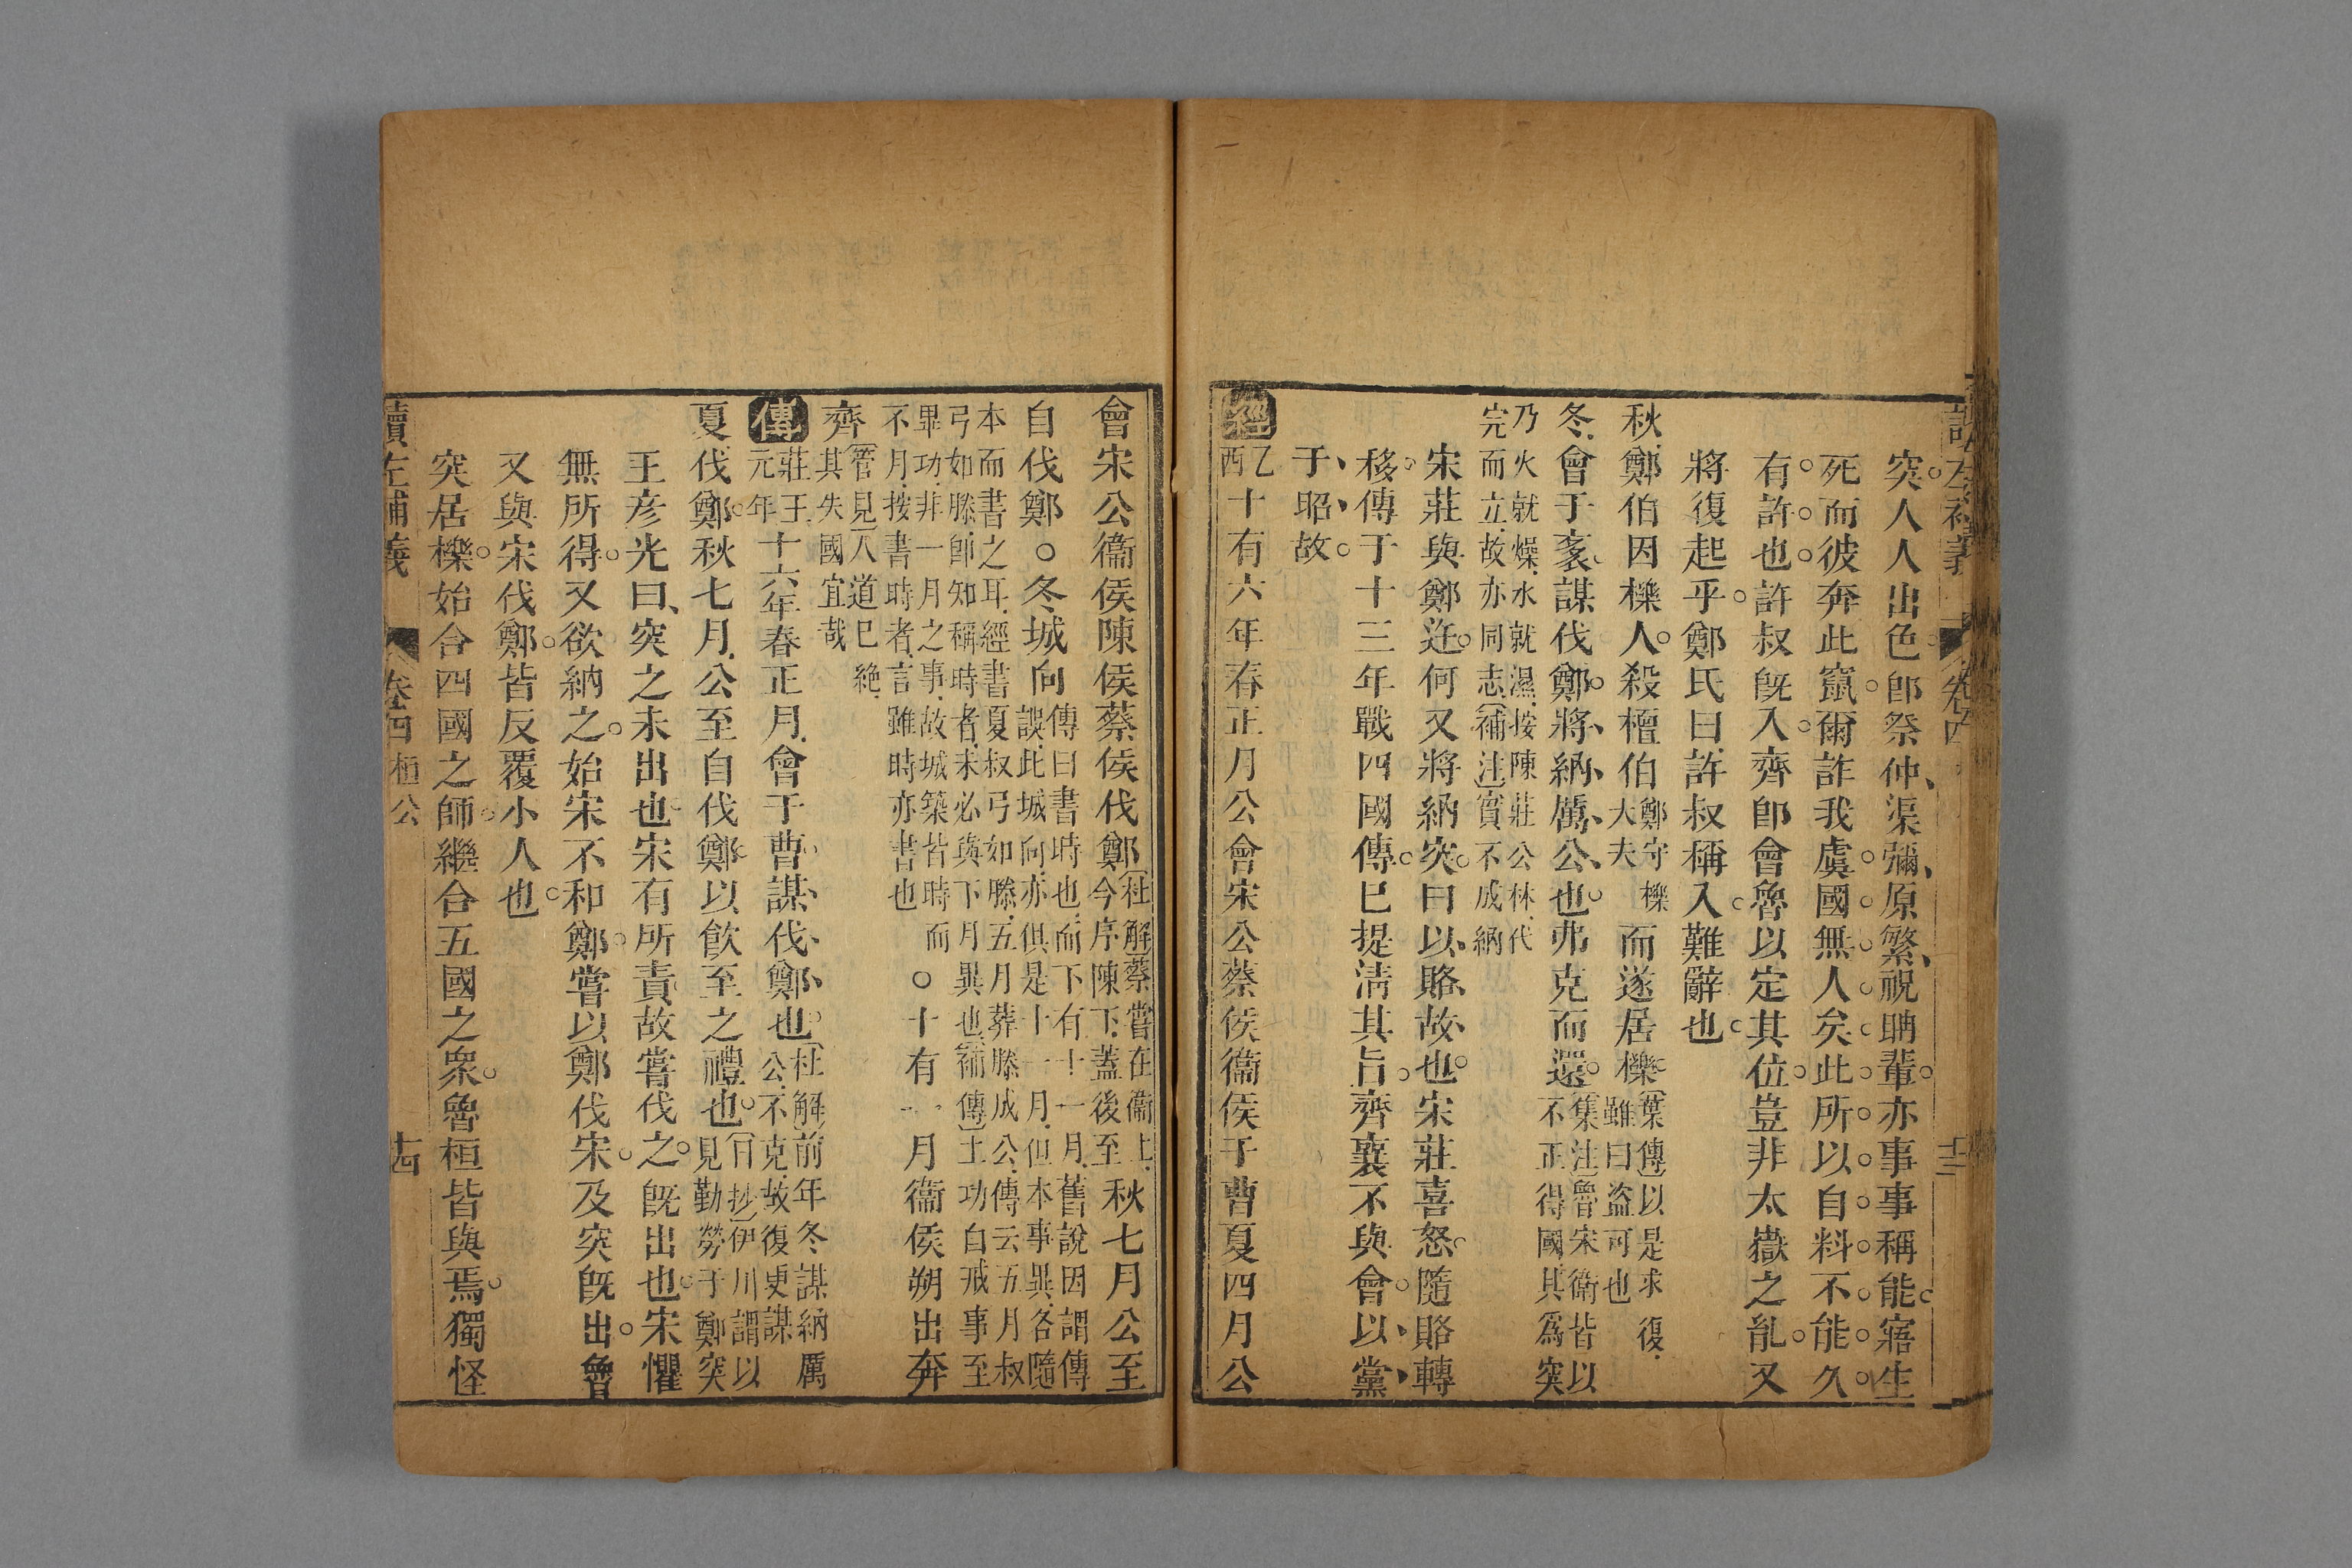 讀左補義 卷四
突人人出色卽祭仲渠彌原繁祝聃輩亦事事稱能寤生
死而彼奔此竄爾詐我虞國無人矣此所以自料不能久
有許也許叔旣入齊卽會魯以定其位豈非太嶽之胤又
將復起乎鄭氏曰許叔稱入難辭也
秋鄭伯因櫟人殺檀伯鄭守櫟大夫而遂居櫟葉傳以是求復雖曰盜可也
冬會于袲謀伐鄭將納厲公也弗克而還集注魯宋衞皆以不正得國其爲突
乃火就燥水就濕按陳莊公林代
完而立故亦同志補注實不成納
宋莊與鄭迋何又將納突曰以賂故也宋莊喜怒隨賂轉
移傳于十三年戰四國傳已提淸其旨齊襄不與會以黨
于昭故
經乙酉十有六年春正月公會宋公蔡侯衞侯于曹夏四月公
會宋公衞侯陳侯蔡侯伐鄭杜解蔡嘗在衞上今序陳下蓋後至秋七月公至
自伐鄭○冬城向傳曰書時也而下有十一月舊說因謂傳誤此城向亦俱是十一月但本事異各隨
本而書之耳經書夏叔弓如滕五月葬滕成公傳云五月叔
弓如滕卽知稱時者未必與下月異也補傳土功自戒事至
畢功非一月之事故城築皆時而
不月按書時者言雖時亦書也
○十有一月衞侯朔出奔
齊管見人道已絶其失國宜哉
傳莊王元年十六年春正月會于曹謀伐鄭也杜解前年冬謀納厲公不克故復更謀
夏伐鄭秋七月公至自伐鄭以飮至之禮也日抄伊川謂以見勤勞于鄭突
王彥光曰突之未出也宋有所責故嘗伐之旣出也宋懼
無所得又欲納之始宋不和鄭嘗以鄭伐宋及突旣出會
又與宋伐鄭皆反覆小人也
突居櫟始合四國之師繼合五國之衆魯桓皆與焉獨怪
讀左補義 卷四 桓公 十四